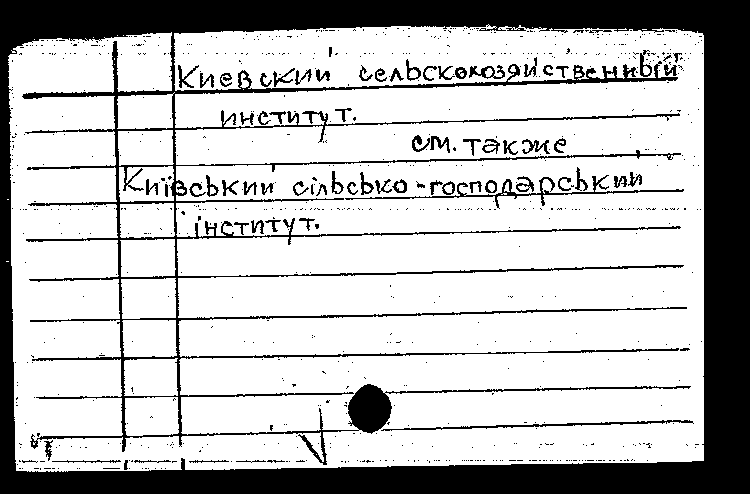 Киевский сельскохозяйственный
институт.
см. также
Київський сільсько-господарський
інститут.